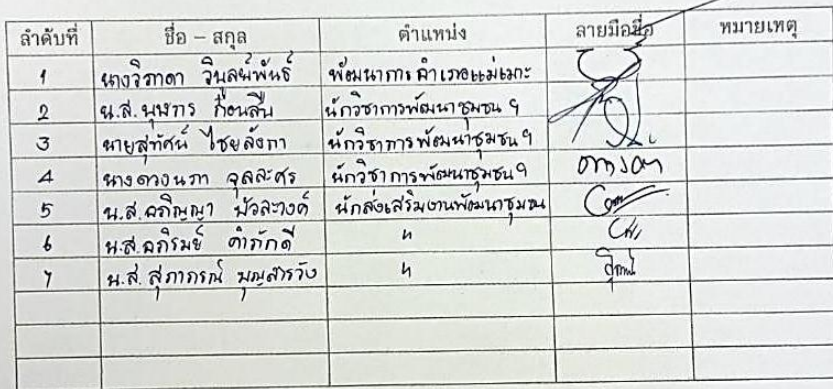 ลำดับที่ ชื่อ – สกุล ตำแหน่ง ลายมือชื่อ หมายเหตุ
1 นางวิภาดา วินลย์พันธ์ พัฒนาการอำเภอแม่เมาะ
2 น.ส. นักวิชาการพัฒนาชุมชน ฯ
3 นายสุทัศน์ ไชยลังกา นักวิชาการพัฒนาชุมชน ฯ
4 นางดวงนภา จุลละศร นักวิชาการพัฒนาชุมชน ฯ ดวงนภา
5 น.ส.อภิญญา บัวละวงค์ นักส่งเสริมงานพัฒนาชุมชน
6 น.ส.อภิรมย์ คำภักดี "
7 น.ส. สุภาภรณ์ บุญสารวัง "